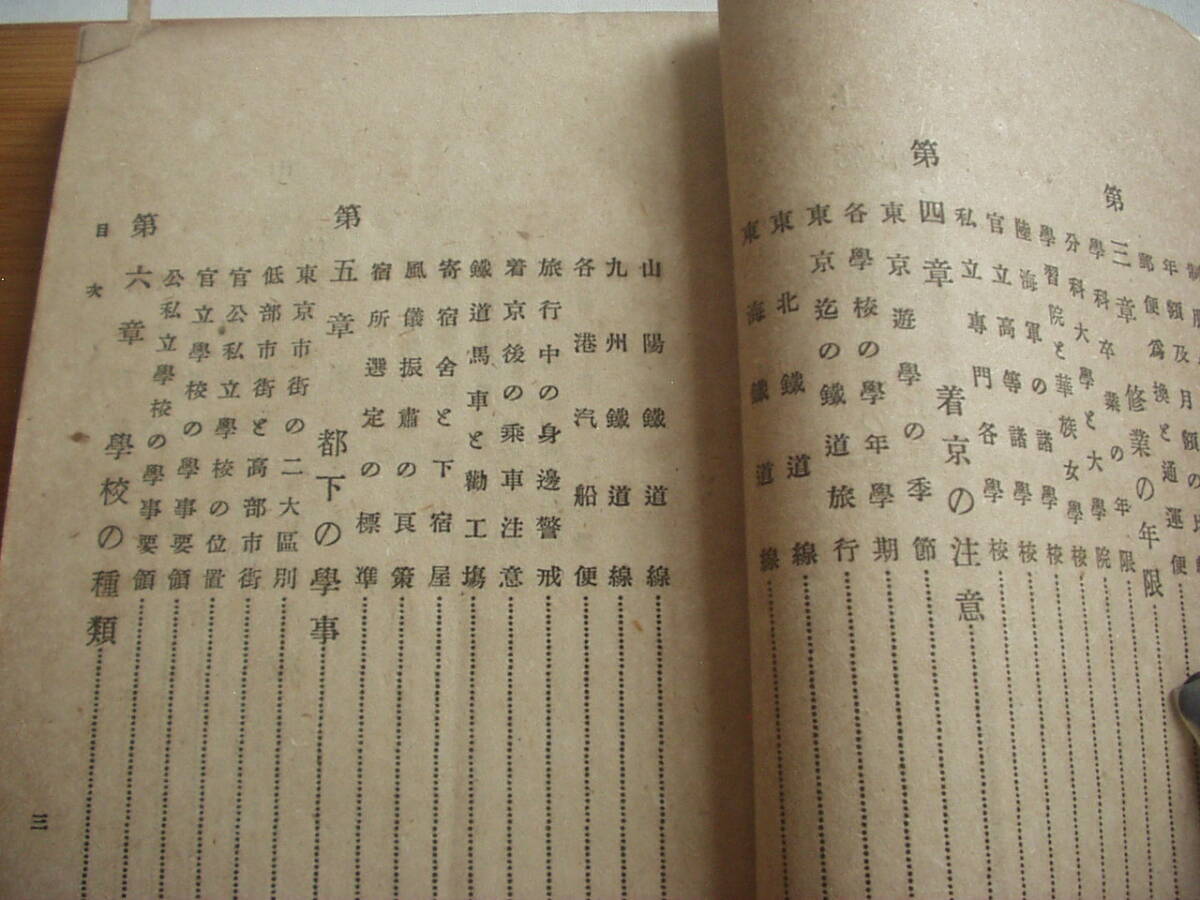 年額及月額の
郵便爲換と通運便
第三章 修業の年限
學科卒業の年限
分科大學と大學院
學習院と華族女學校
陸海軍の諸學校
官立高等諸學校
私立專門各學校
第四章 着京の注意
東京遊學の季節
各學校の學年學期
東京迄の鐵道旅行
東北鐵道線
東海鐵道線
山陽鐵道線
九州鐵道線
各港汽船便
旅行中の身邊警戒
着京後の乘車注意
鐵道馬車と勸工塲
寄宿舍と下宿屋
風儀振肅の良策
宿所選定の標準
第五章 都下の學事
東京市街の二大區別
低部市街と高部市街
官公私立學校の位置
官立學校の學事要領
公私立學校の學事要領
第六章 學校の種類
目次
三